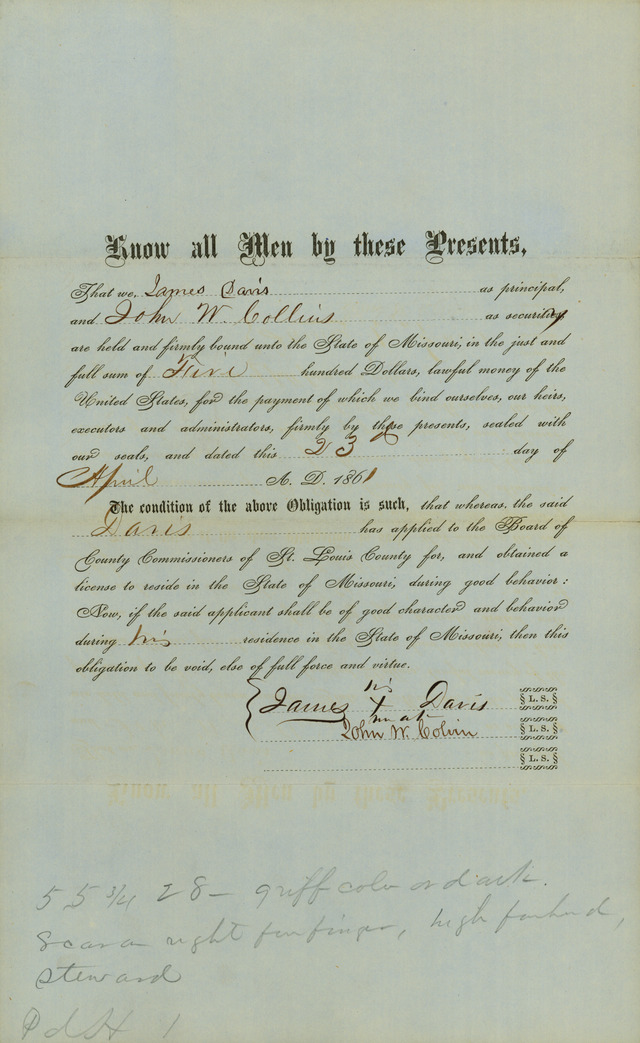 Know all Men by these Presents,
That we, James Davis as principal,
and John W. Collins as security
are held and firmly bound unto the State of Missouri, in the just and
full sum of Five hundred Dollars, lawful money of the
United States, for the payment of which we bind ourselves, our heirs,
executors and administrators, firmly by these presents, sealed with
our seals, and dated this 23 day of
April A. D. 1861
The condition of the above Obligation is such, that whereas, the said
Davis has applied to the Board of
County Commissioners of St. Louis County for, and obtained a
license to reside in the State of Missouri, during good behavior:
Now, if the said applicant shall be of good character and behavior
during his residence in the State of Missouri, then this
obligation to be void, else of full force and virtue.
his
James X Davis L. S.
mark
John W. Colvin L. S.
L. S.
5 5 3/4 28 – griff color or dark.
scar on right forfinger, high forhead,
steward